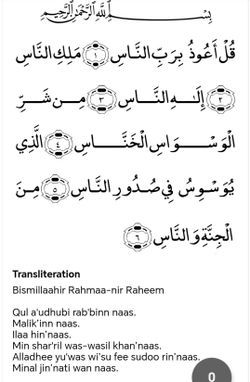 بِسْمِ اللَّهِ الرَّحْمَٰنِ الرَّحِيمِ
قُلْ أَعُوذُ بِرَبِّ النَّاسِ ١ مَلِكِ النَّاسِ
٢ إِلَٰهِ النَّاسِ ٣ مِن شَرِّ
الْوَسْوَاسِ الْخَنَّاسِ ٤ الَّذِي
يُوَسْوِسُ فِي صُدُورِ النَّاسِ ٥ مِنَ
الْجِنَّةِ وَالنَّاسِ ٦
Transliteration
Bismillaahir Rahmaa-nir Raheem
Qul a'udhubi rab'binn naas.
Malik'inn naas.
Ilaa hin'naas.
Min shar'ril was-wasil khan'naas.
Alladhee yu'was wi'su fee sudoo rin'naas.
Minal jin'nati wan naas.
0